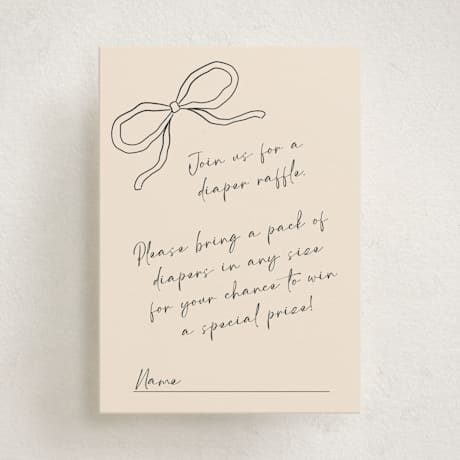 Join us for a
diaper raffle.
Please bring a pack of
diapers in any size
for your chance to win
a special prize!
Name